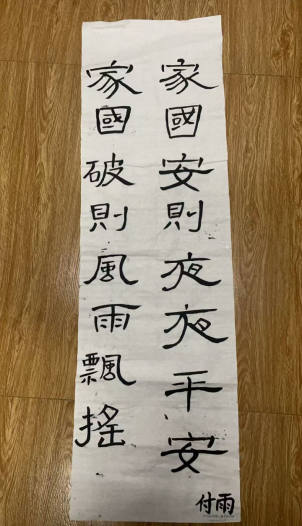 家國安則夜夜平安
家國破則風雨飄搖
付雨